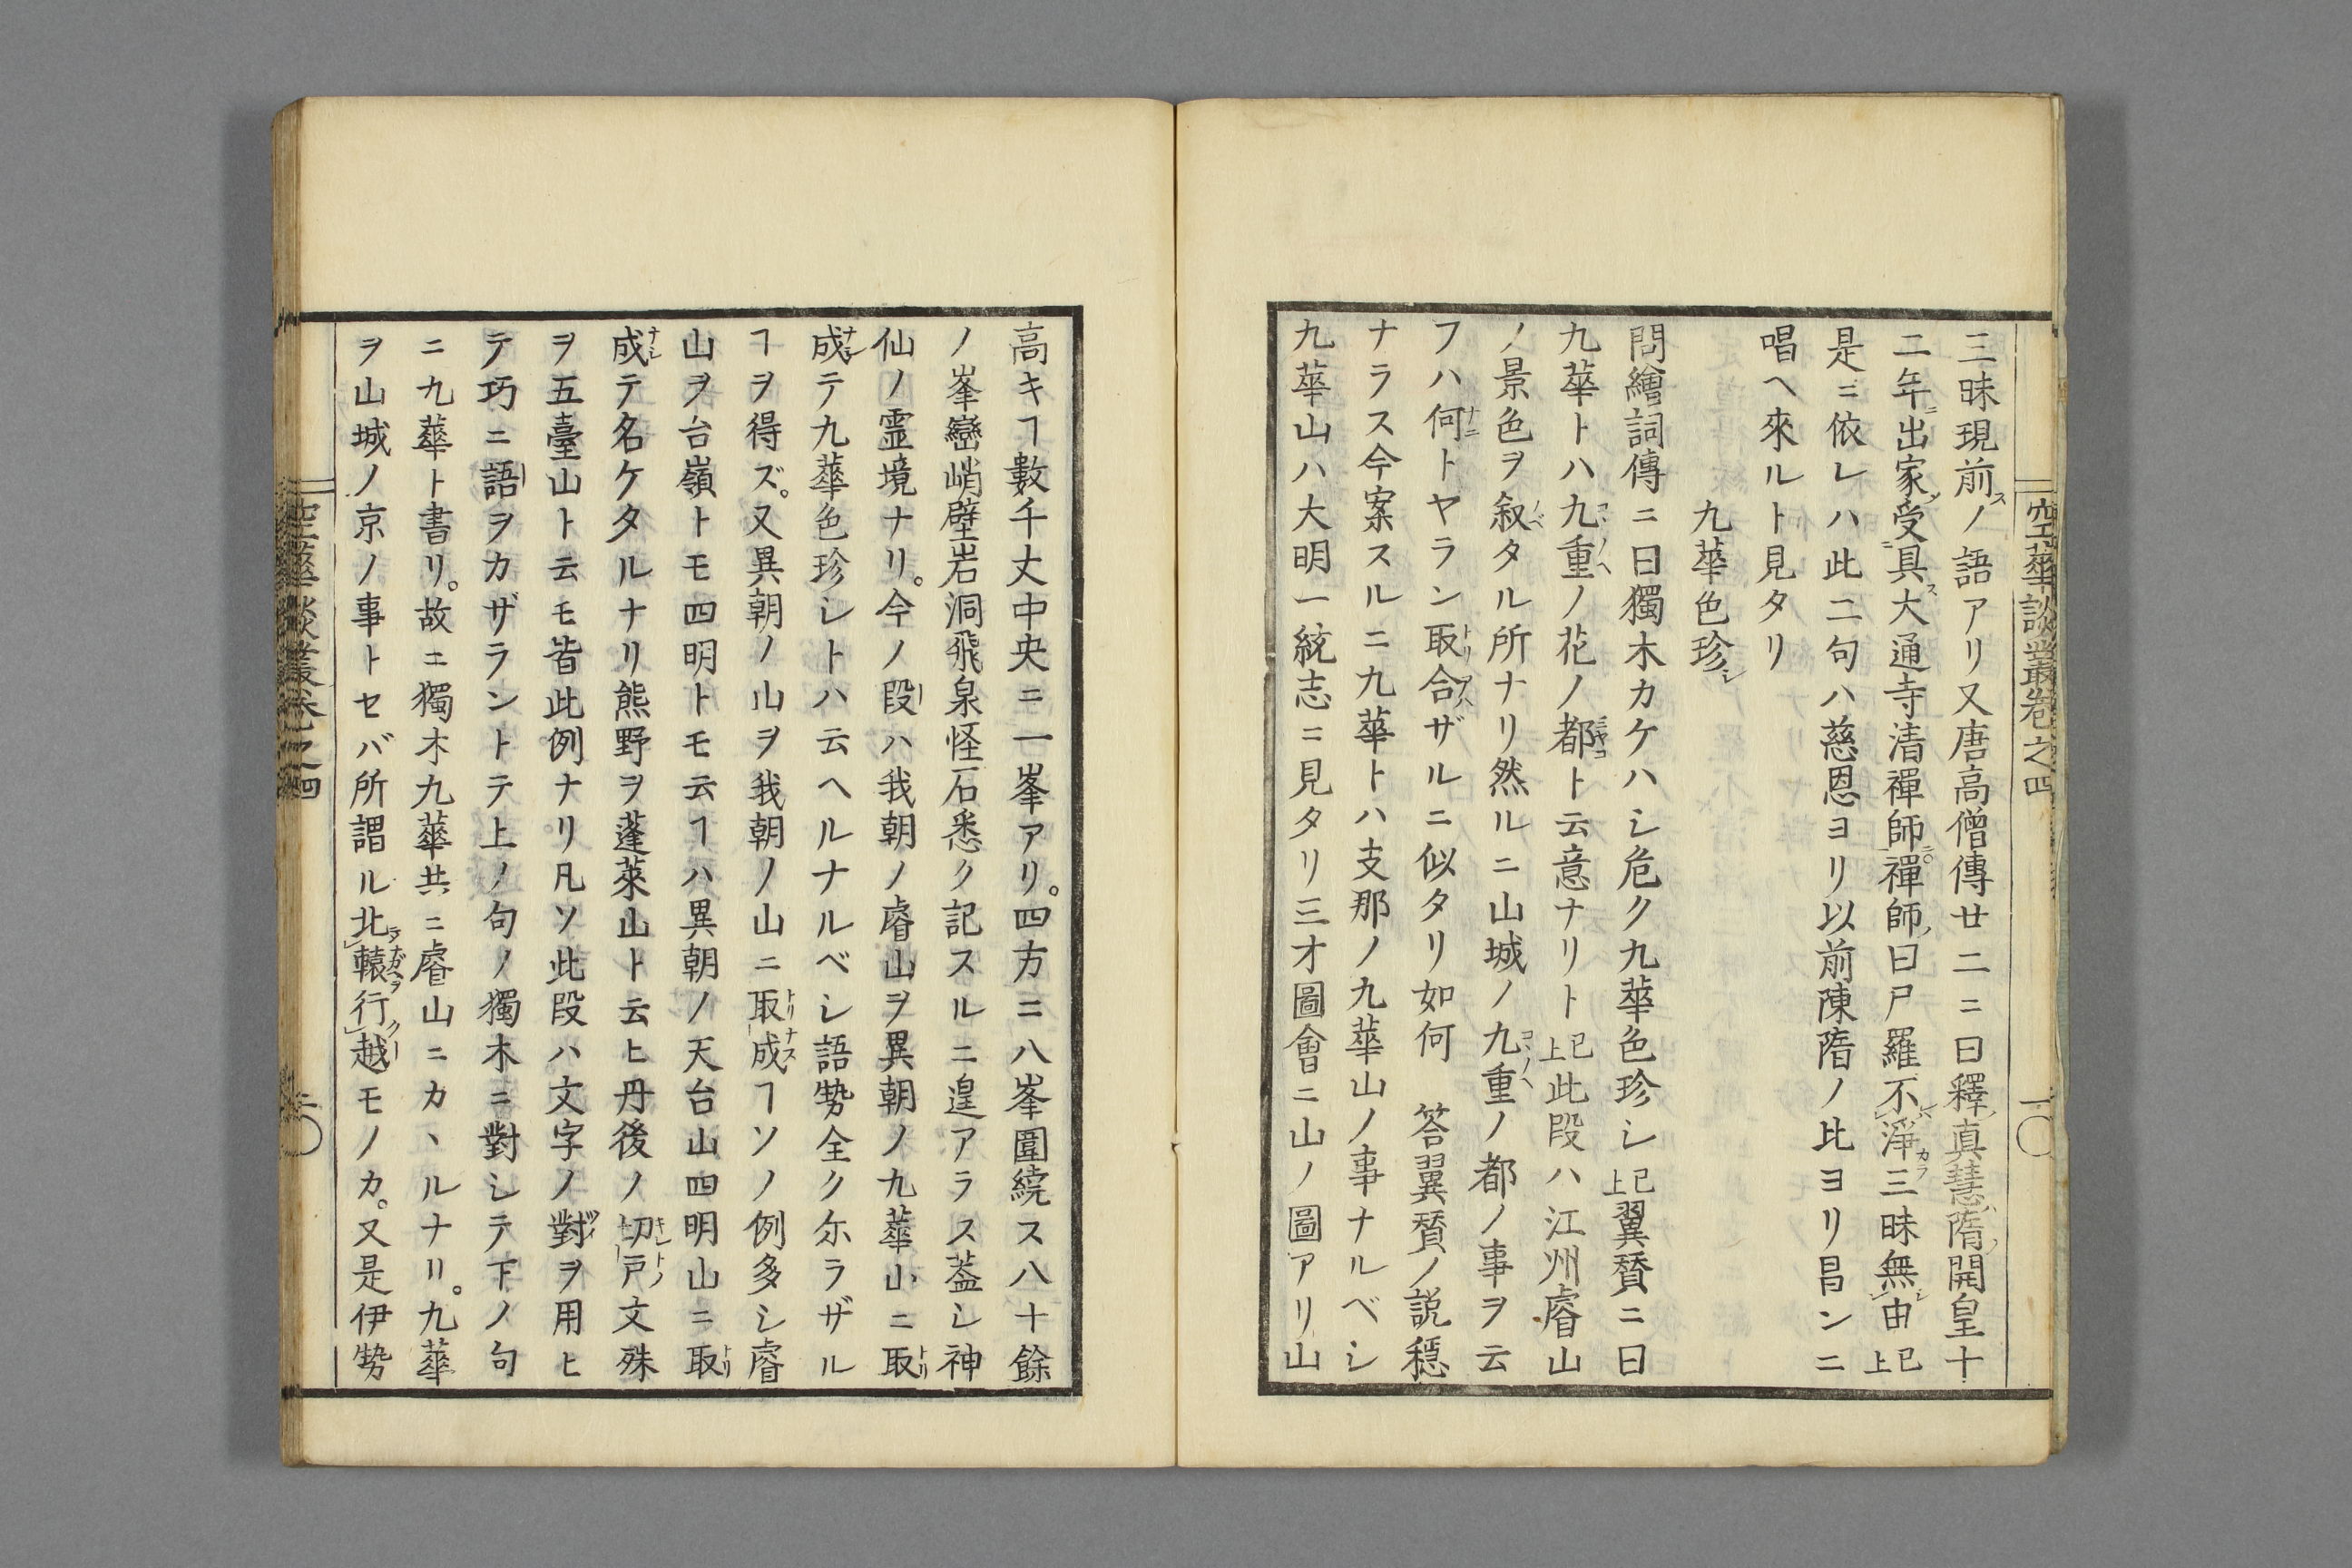 空華談叢卷之四
一〇
三昧現前スノ語アリ又唐高僧傳廿二ニ曰釋真慧隋開皇十
二年ニ出家受具ス大通寺清禪師禪師曰尸羅不淨三昧無由已上
是ニ依レハ此二句ハ慈恩ヨリ以前陳隋ノ比ヨリ昌ンニ
唱ヘ來ルト見タリ
九華色珍シ
問繪詞傳ニ曰獨木カケハシ危ク九華色珍シ已上翼賛ニ曰
九華トハ九重ノ花ノ都ト云意ナリト已上此段ハ江州睿山
ノ景色ヲ叙タル所ナリ然ルニ山城ノ九重ノ都ノ事ヲ云
フハ何トヤラン取合ザルニ似タリ如何 答翼賛ノ説穩
ナラス今案スルニ九華トハ支那ノ九華山ノ事ナルベシ
九華山ハ大明一統志ニ見タリ三才圖會ニ山ノ圖アリ山
高キヿ數千丈中央ニ一峯アリ。四方ニ八峯圍繞ス八十餘
ノ峯巒峭壁岩洞飛泉怪石悉ク記スルニ遑アラス葢シ神
仙ノ霊境ナリ。今ノ段ハ我朝ノ睿山ヲ異朝ノ九華山ニ取
成テ九華色珍シトハ云ヘルナルベシ語勢全ク尓ラザル
ヿヲ得ズ。又異朝ノ山ヲ我朝ノ山ニ取成ヿソノ例多シ睿
山ヲ台嶺トモ四明トモ云ヿハ異朝ノ天台山四明山ニ取
成テ名ケタルナリ熊野ヲ蓬萊山ト云ヒ丹後ノ切戸文殊
ヲ五臺山ト云モ皆此例ナリ凡ソ此段ハ文字ノ對ヲ用ヒ
テ巧ニ語ヲカザラントテ上ノ句ノ獨木ニ對シテ下ノ句
ニ九華ト書リ。故ニ獨木九華共ニ睿山ニカヽルナリ。九華
ヲ山城ノ京ノ事トセバ所謂ル北轅行越モノカ。又是伊勢
空華談叢卷之四
二〇